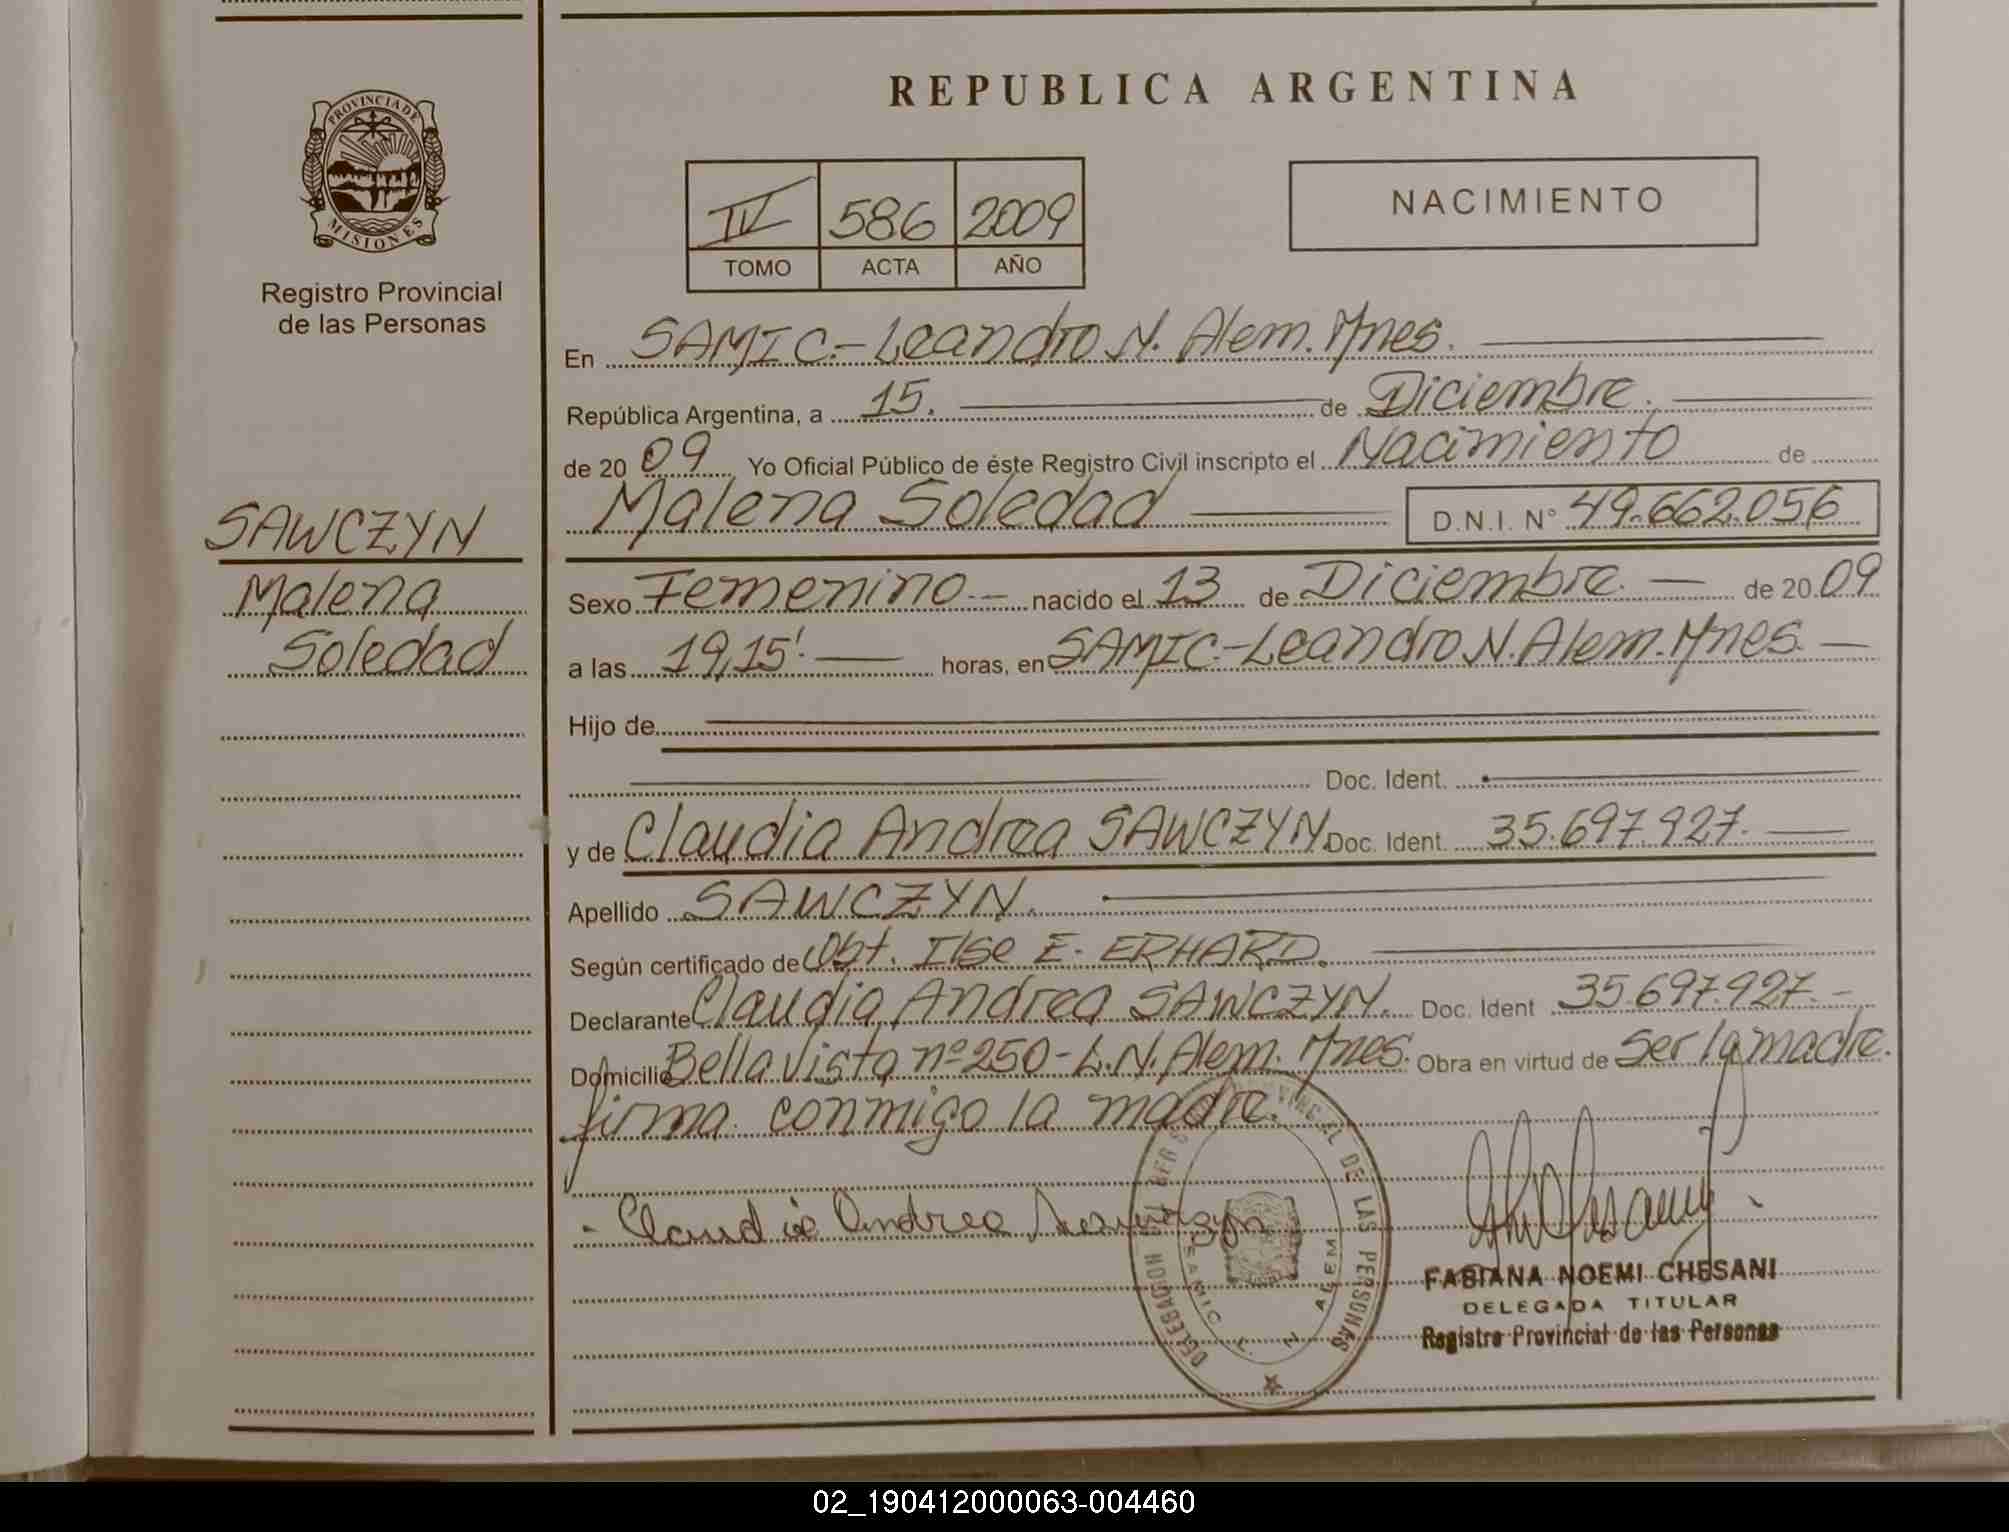 REPUBLICA ARGENTINA
PROVINCIA DE
MISIONES
Registro Provincial
de las Personas
IV 586 2009
TOMO ACTA AÑO
NACIMIENTO
En SAMIC.- Leandro N. Alem. Mnes.
República Argentina, a 15. de Diciembre.
de 20 09 Yo Oficial Público de éste Registro Civil inscripto el Nacimiento de
Malena Soledad D.N.I. N° 49.662.056
SAWCZYN
Malena
Soledad
Sexo Femenino.- nacido el 13 de Diciembre. de 20 09
a las 19,15'. horas, en SAMIC.-Leandro N. Alem. Mnes.
Hijo de
Doc. Ident.
y de Claudia Andrea SAWCZYN. Doc. Ident. 35.697.927.
Apellido SAWCZYN.
Según certificado de Obt. Ilse E. ERHARD.
Declarante Claudia Andrea SAWCZYN. Doc. Ident 35.697.927.-
Domicilio Bella Vista nº 250 - L.N. Alem. Mnes. Obra en virtud de Ser la madre.
firma conmigo la madre.
- Claudia Andrea Sawczyn
PROVINCIAL DE LAS PERSONAS
SAMIC L. N. ALEM
FABIANA NOEMI CHESANI
DELEGADA TITULAR
Registro Provincial de las Personas
02_190412000063-004460